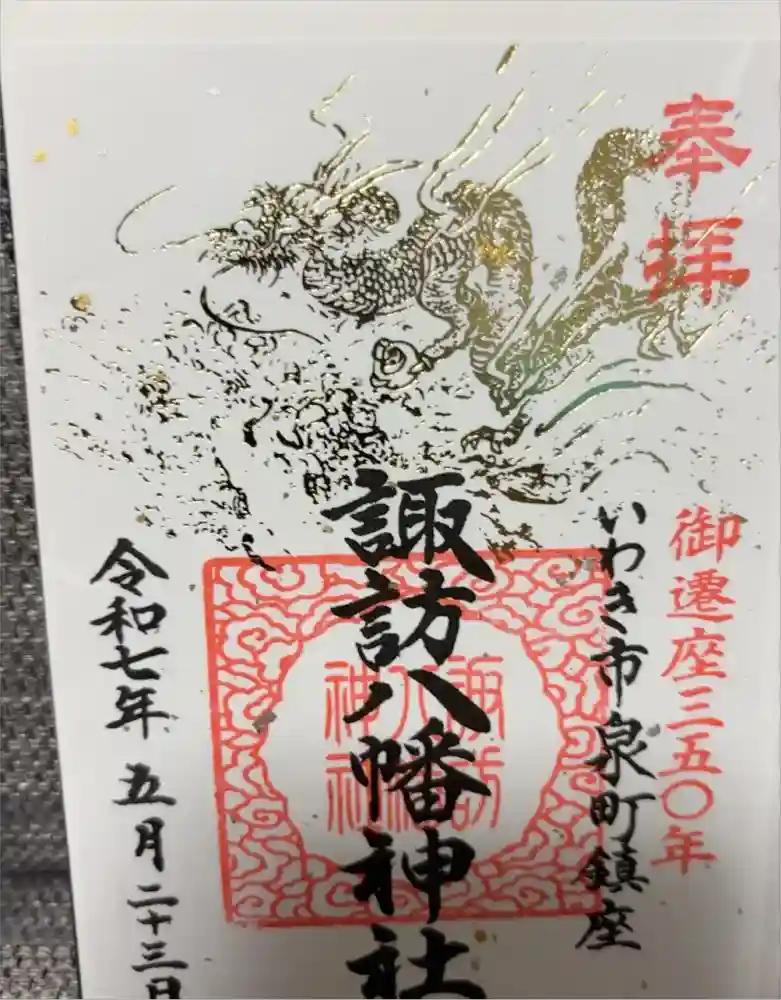 奉拝
御遷座三五〇年
いわき市泉町鎮座
諏訪八幡神社
諏訪八幡神社
令和七年 五月二十三日